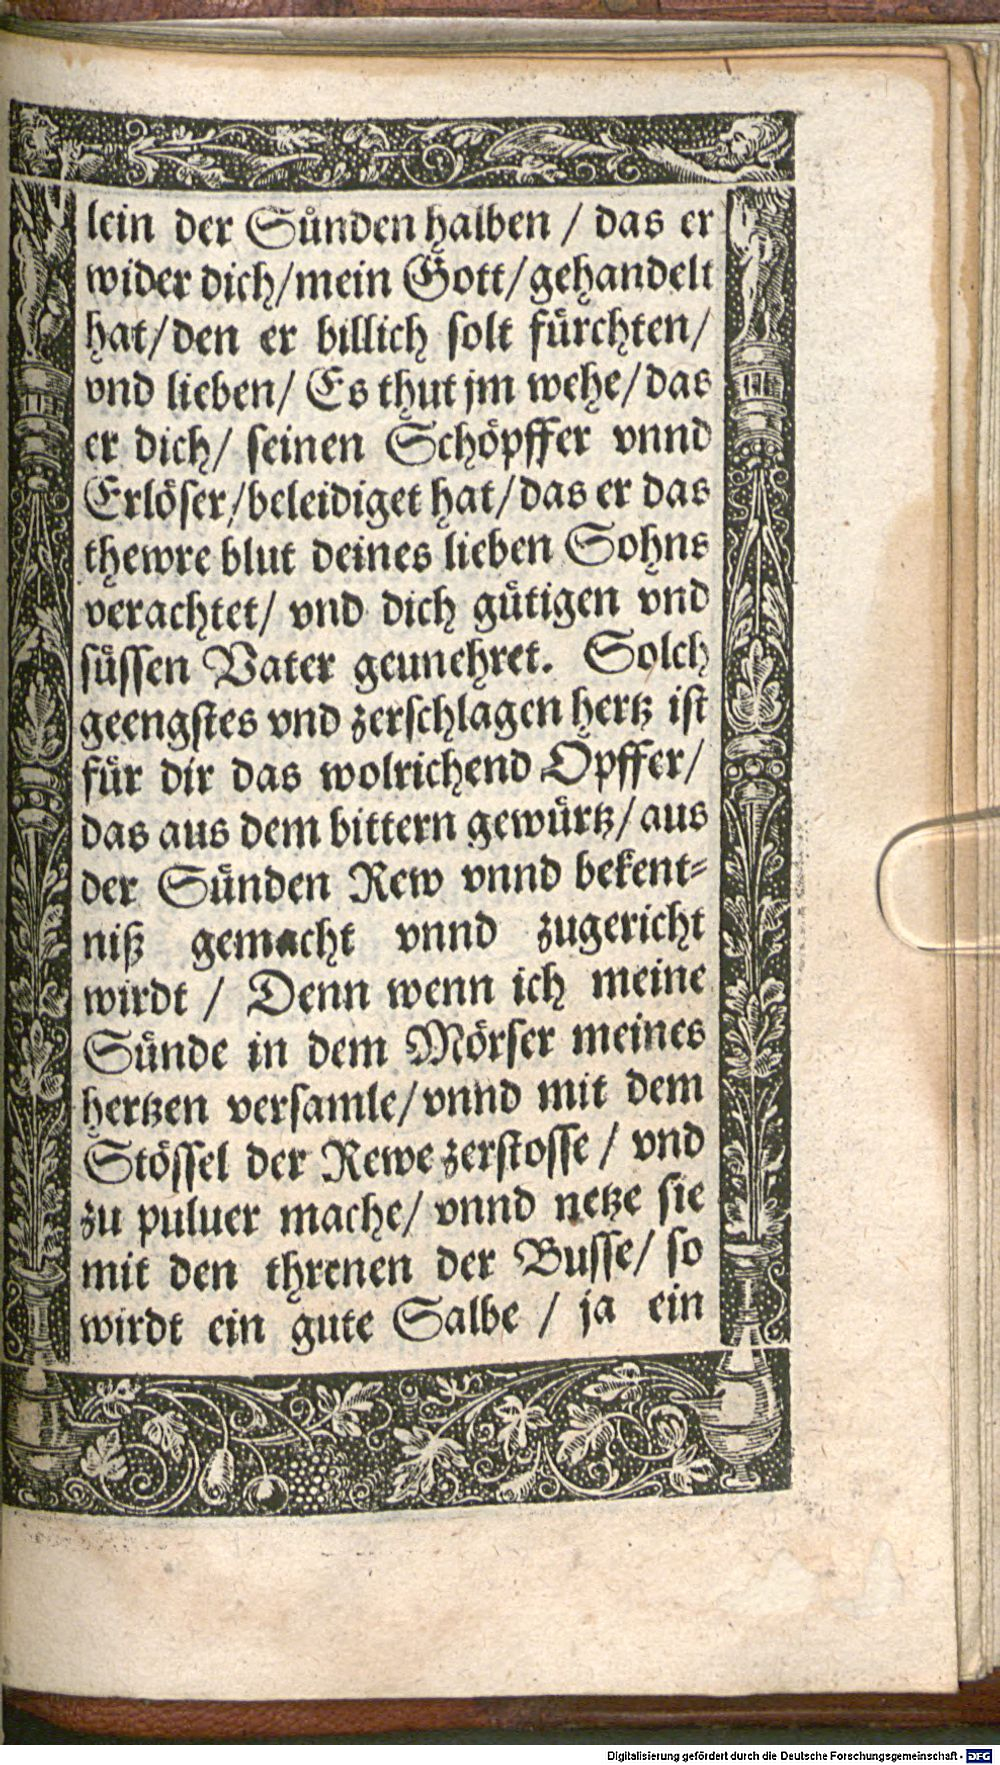 lein der Sůnden halben / das er
wider dich/mein Gott/gehandelt
hat/den er billich solt fürchten/
vnd lieben/ Es thut jm wehe/das
er dich/ seinen Schöpffer vnnd
Erlöser/beleidiget hat/das er das
thewre blut deines lieben Sohns
verachtet/ vnd dich gütigen vnd
süssen Vater geunehret. Solch
geengstes vnd zerschlagen hertz ist
für dir das wolrichend Opffer/
das aus dem bittern gewürtz/aus
der Sünden Rew vnnd bekent-
niß gemacht vnnd zugericht
wirdt / Denn wenn ich meine
Sünde in dem Mörser meines
hertzen versamle/vnnd mit dem
Stössel der Rewe zerstosse / vnd
zu puluer mache/ vnnd netze sie
mit den threnen der Busse/ so
wirdt ein gute Salbe / ja ein
Digitalisierung gefördert durch die Deutsche Forschungsgemeinschaft - DFG